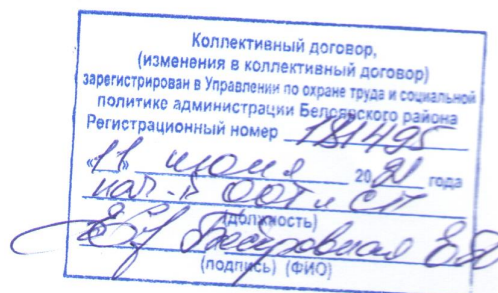 Коллективный договор,
(изменения в коллективный договор)
зарегистрирован в Управлении по охране труда и социальной
политике администрации Белоярского района
Регистрационный номер
«11» июня 2021 года
нач-к ООТ и СП
(должность)
(подпись) (ФИО)